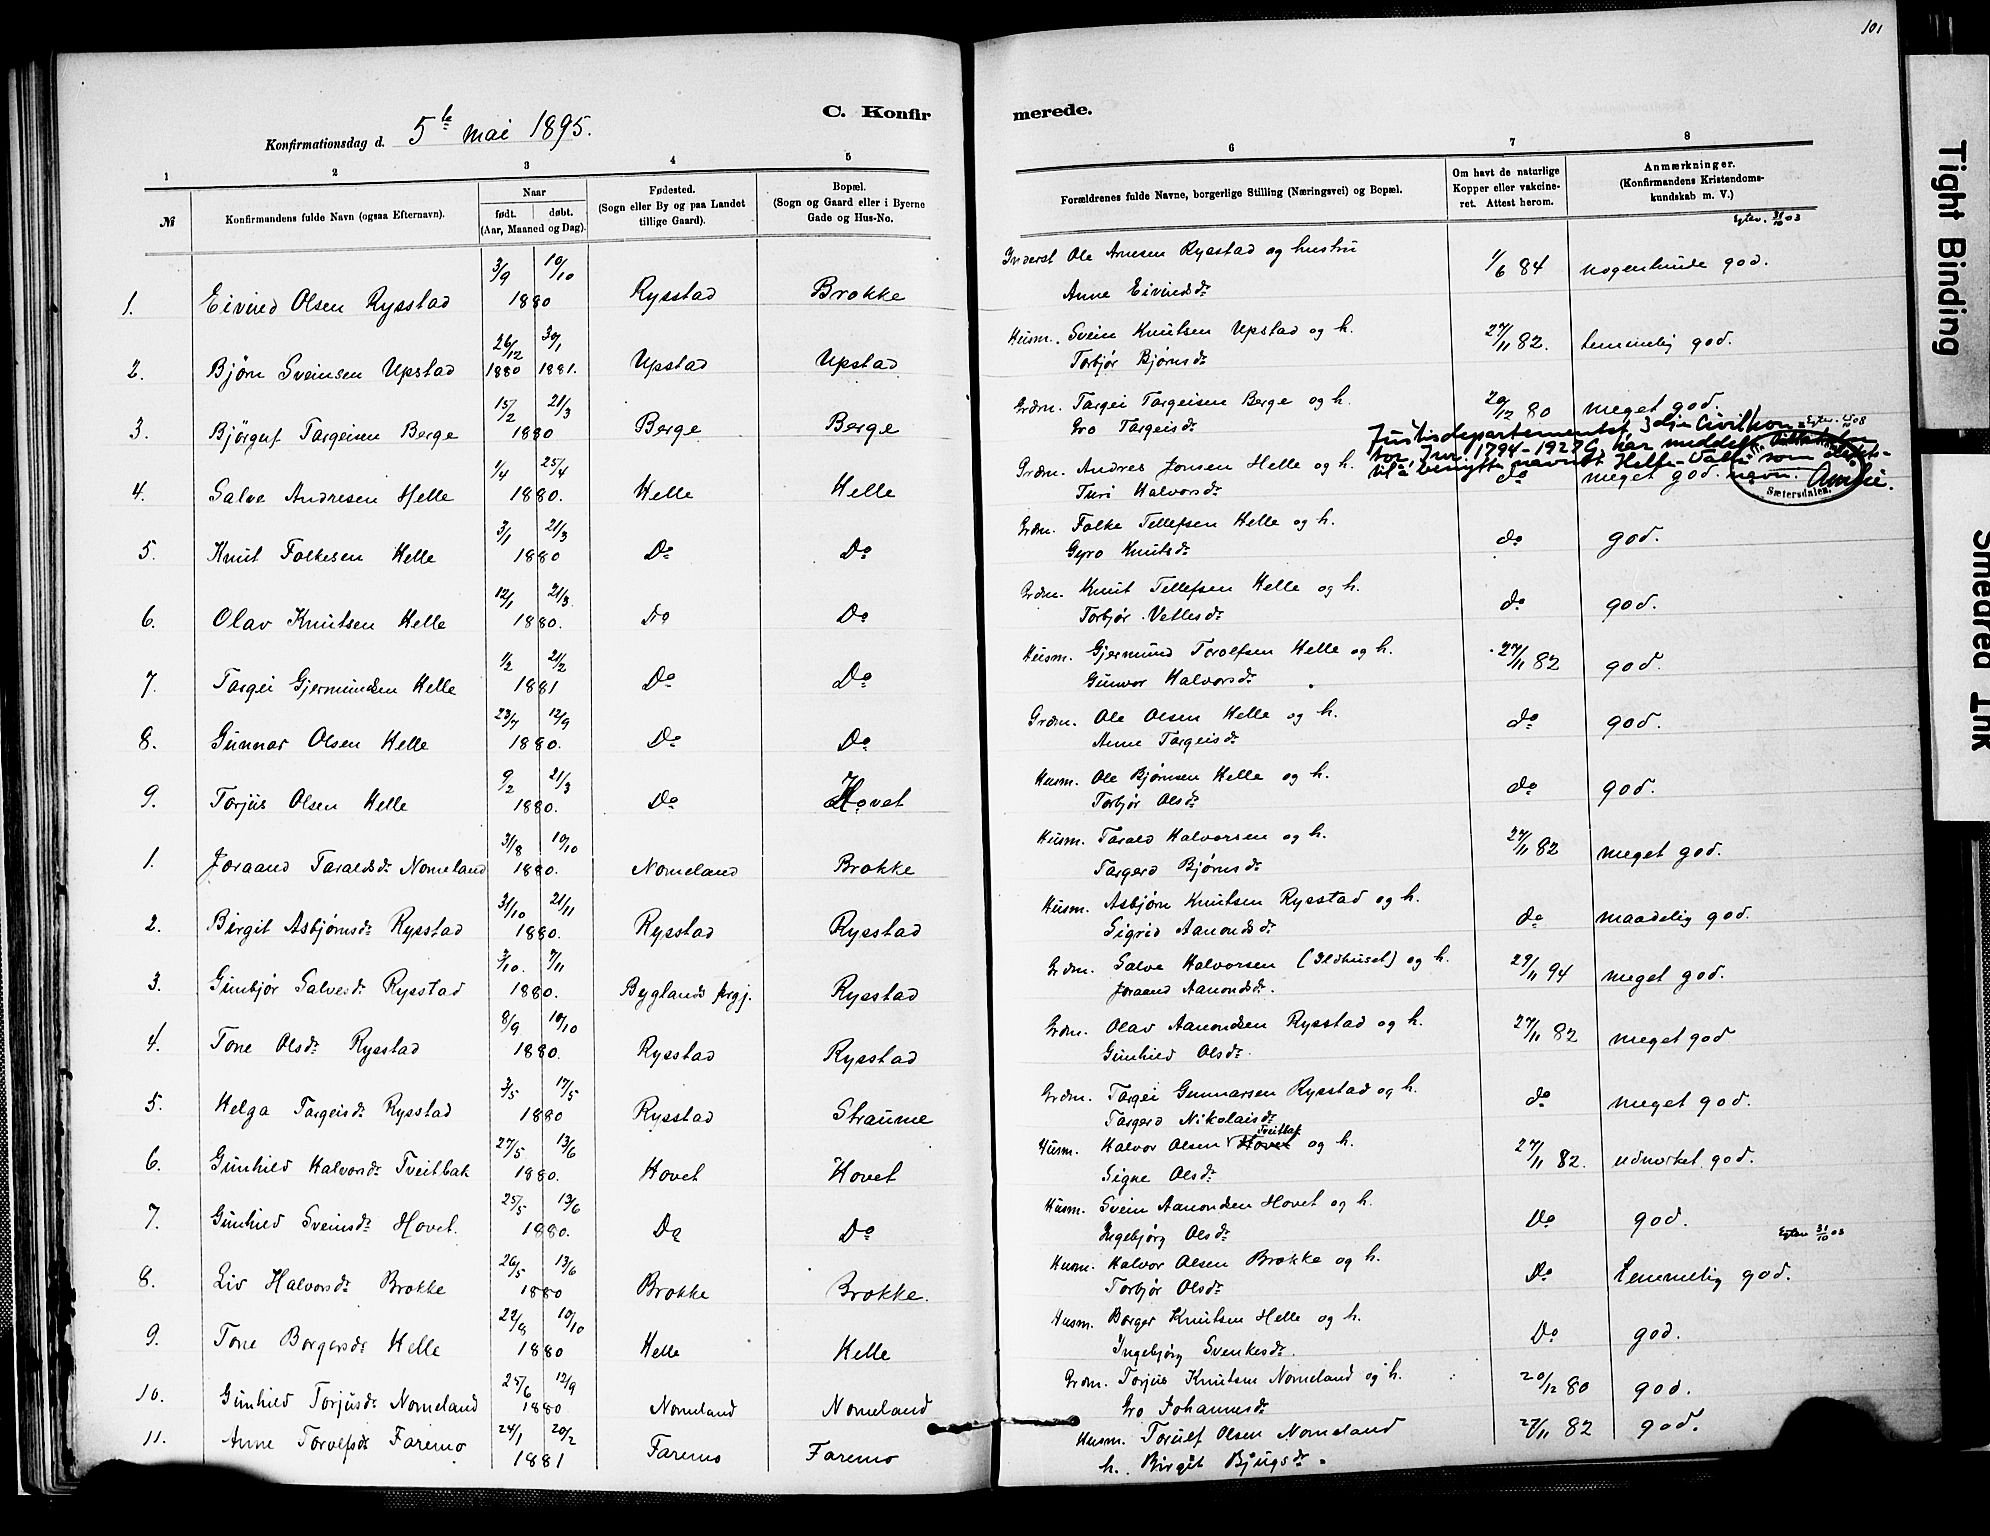 101
C. Konfirmerede.
Konfirmationsdag d. 5te mai 1895.
1 2 3 4 5 6 7 8
№ Konfirmandens fulde Navn (ogsaa Efternavn). Naar født. døbt. (Aar, Maaned og Dag). Fødested. (Sogn eller By og paa Landet tillige Gaard). Bopæl. (Sogn og Gaard eller i Byerne Gade og Hus-No. Forældrenes fulde Navne, borgerlige Stilling (Næringsvei) og Bopæl. Om havt de naturlige Kopper eller vakcineret. Attest herom. Anmærkninger. (Konfirmandens Kristendomskundskab m. V.)
1. Eivind Olsen Rysstad 3/9 10/10 1880 Rysstad Brokke Inderst Ole Arnesen Rysstad og hustru Anne Eivindsdr 1/6 84 nogenlunde god. 31/10 03
2. Bjørn Sveinsen Upstad 26/12 1880 30/1 1881. Upstad Upstad Husm. Svein Knutsen Upstad og h. Torbjør Bjørnsdr 27/11 82. temmelig god.
3. Bjørguf Targeisen Berge 15/2 21/3 1880 Berge Berge Grdm. Targei Targeisen Berge og h. Gro Targeisdr 20/12 80 meget god.
Justisdepartementet, 3dje Civilkontor, Jnr. 1794-1927 G, har meddelt tillatelse til å benytte navnet Helle-Valle som slektsnavn.
Sætersdalen.
4. Salve Andresen Helle 1/4 25/4 1880. Helle Helle Grdm. Andres Jonsen Helle og h. Turi Halvorsdr do meget god.
5. Knut Folkesen Helle 3/1 21/3 1880 Do Do Grdm. Folke Tellefsen Helle og h. Gyro Knutsdr do god.
6. Olav Knutsen Helle 12/1 21/3. 1880. Do Do Grdm. Knut Tellefsen Helle og h. Torbjør Vetlesdr do god.
7. Targei Gjermundsen Helle 1/2 21/2 1881 Do Do Husm. Gjermund Torolfsen Helle og h. Gunvor Halvorsdr 27/11 82 god.
8. Gunnar Olsen Helle 23/7 12/9 1880. Do Do Grdm. Ole Olsen Helle og h. Anne Targeisdr do god.
9. Torjus Olsen Helle 9/2 21/3 1880. Do Hovet Husm. Ole Bjørnsen Helle og h. Torbjør Olsdr do god.
1. Joraand Taraldsdr Nomeland 31/8 10/10 1880. Nomeland Brokke Husm. Tarald Halvorsen og h. Targerd Bjørnsdr 27/11 82 meget god.
2. Birgit Asbjørnsdr Rysstad 31/10 21/11 1880. Rysstad Rysstad Husm. Asbjørn Knutsen Rysstad og h. Sigrid Aanondsdr do maadelig god.
3. Gunbjør Salvesdr Rysstad 3/10. 7/11 1880. Byglands prgj. Rysstad Grdm. Salve Halvorsen (Ildhuset) og h. Joraand Aanondsdr. 29/11 94 meget god.
4. Tone Olsdr Rysstad 8/9 10/10 1880. Rysstad Rysstad Grdm. Olav Aanondsen Rysstad og h. Gunhild Olsdr. 27/11 82 meget god
5. Helga Targeisdr Rysstad 3/5 17/5 1880 Rysstad Straume Grdm. Targei Gunnarsen Rysstad og h. Targerd Nikolaisdr do meget god.
6. Gunhild Halvorsdr Tveitbak 27/5 13/6 1880. Hovet Hovet Husm. Halvor Olsen Hovet Tveitbak og h. Signe Olsdr 27/11 82. udmerket god.
7. Gunhild Sveinsdr Hovet. 25/5 13/6 1880. Do Do Husm. Svein Aanondsen Hovet og h. Ingebjørg Olsdr Do god.
8. Liv Halvorsdr Brokke 26/5 13/6 1880 Brokke Brokke. Husm. Halvor Olsen Brokke og h. Torbjør Olsdr Do temmelig god. 31/10 03
9. Tone Borgersdr Helle 22/8 10/10 1880 Helle Helle Husm. Borger Knutsen Helle og h. Ingebjørg Svenkesdr. Do god.
10. Gunhild Torjusdr Nomeland 25/6 12/9 1880 Nomeland Nomeland Grdm. Torjus Knutsen Nomeland og h. Gro Johannesdr 20/12 80 god.
11. Anne Torolfsdr Faremo 24/1 20/2 1881 Faremo Faremo Husm. Torulf Olsen Nomeland h. Birgit Bjugsdr. 27/11 82 god.
Tight Binding
Smeared Ink